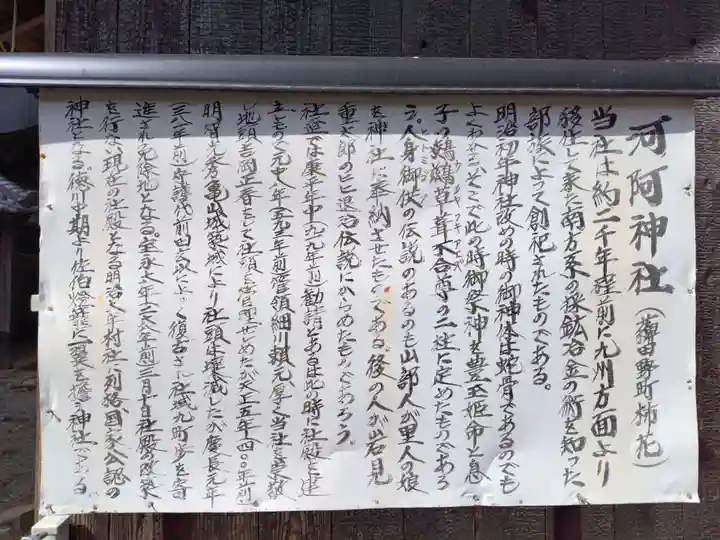 河阿神社(薭田野町柿花)
当社は約二千年程前に九州方面より
移住して来た南方系の採鉱冶金の術を知った
部族によって創祀されたものである。
明治初年神社改めの時の御神体は蛇骨であるのでも
よくわかる。そこで此の時御祭神を豊玉姫命と息
子の鵜鶿草葺不合尊の二柱に定めたものであろ
う。人身御供の伝説のあるのも山部人が里人の娘
を神社に奉納させたものである。後の人が岩見
重太郎のヒヒ退治伝説にからめたものであろう。
社蹟では 年中 年前 勧請とあるは此の時に社殿を建
立したもの元中八年 五九二年前管領細川頼元厚く当社を崇敬
し地頭吉岡正春をして社領を管理せしめたが天正五年 四〇〇年前
明智光秀亀山城築城により社頭は壊滅したが慶長元年
三八 年前守護代前田玄以によって復古され社域九町歩を寄
進され免除地となる。宝永 年 二 八年前三月十日社殿の改築
を行ない現在の社殿となる明治 年村社に列格国家公認の
神社となる。徳川中期より佐伯 神社である